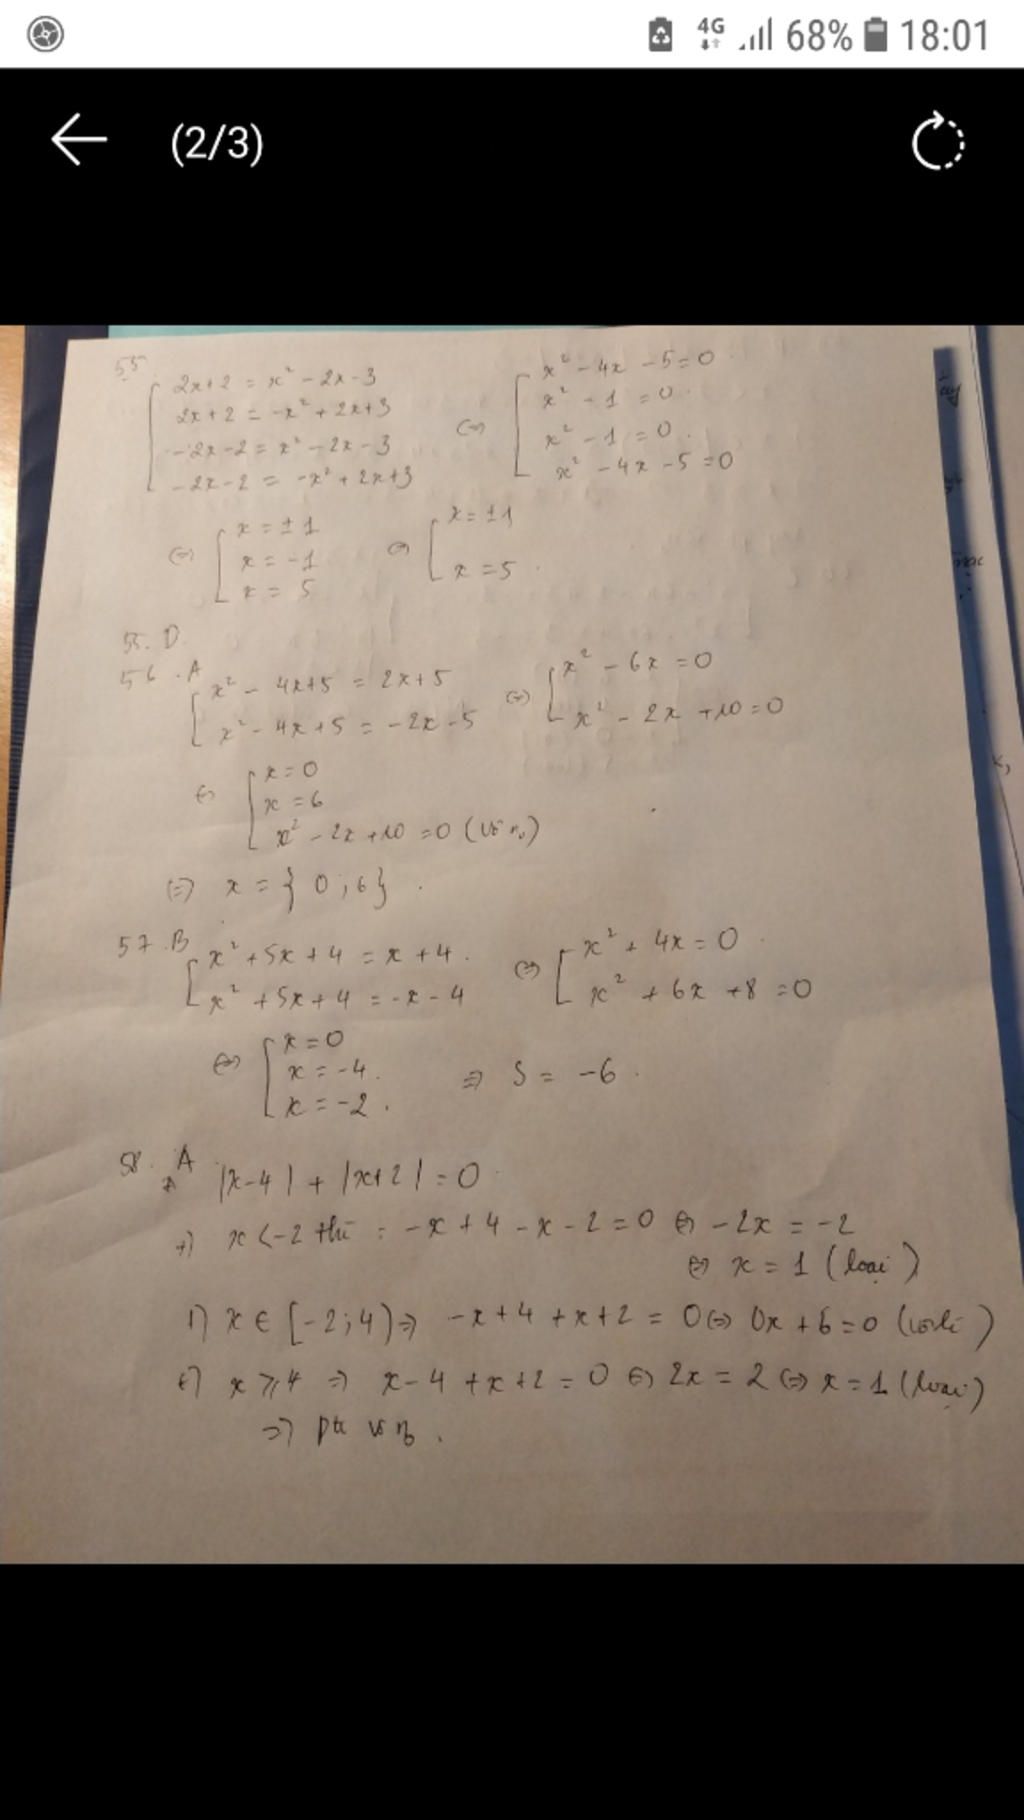 4G 68% 18:01
(2/3)
55.
2x+2 = x² - 2x - 3
2x+2 = -x² + 2x+3
-2x-2 = x² - 2x - 3
-2x-2 = -x² + 2x+3
⇔
x² - 4x - 5 = 0
x² - 1 = 0
x² - 1 = 0
x² - 4x - 5 = 0
⇔
x = ±1
x = -1
x = 5
⇔
x = ±1
x = 5
55. D
56. A
x² - 4x+5 = 2x+5
x² - 4x+5 = -2x-5
⇔
x² - 6x = 0
x² - 2x + 10 = 0
⇔
x = 0
x = 6
x² - 2x + 10 = 0 (vô n₀)
⇒ x = { 0 ; 6 }
57. B
x² + 5x + 4 = x + 4.
x² + 5x + 4 = -x - 4
⇔
x² + 4x = 0
x² + 6x + 8 = 0
⇔
x = 0
x = -4.
x = -2.
⇒ S = -6.
58. A
|x-4| + |x+2| = 0
+) x < -2 thì : -x + 4 - x - 2 = 0 ⇔ -2x = -2
⇔ x = 1 (loại)
+) x ∈ [-2;4) ⇒ -x+4 + x+2 = 0 ⇔ 0x + 6 = 0 (vô lí)
+) x ⩾ 4 ⇒ x - 4 + x + 2 = 0 ⇔ 2x = 2 ⇔ x = 1 (loại)
⇒ pt vô n₀.